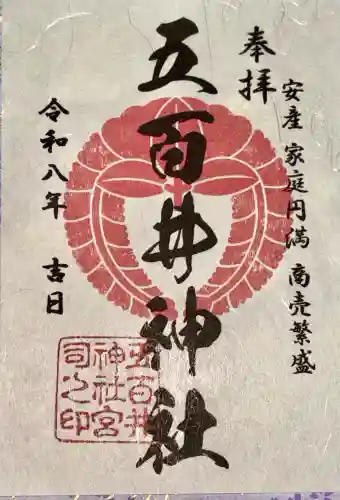 奉拝
安産 家庭円満 商売繁盛
五百井神社
令和八年 吉日
五百井
神社宮
司之印